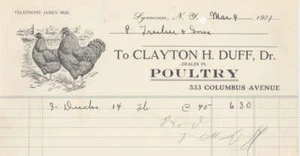 TELEPHONE JAMES
Syracuse, N. Y. Mar 4 191
& Sons
To CLAYTON H. DUFF, Dr.
DEALER IN
POULTRY
533 COLUMBUS AVENUE
3 - Ducks 14 lb @ 45 6 30